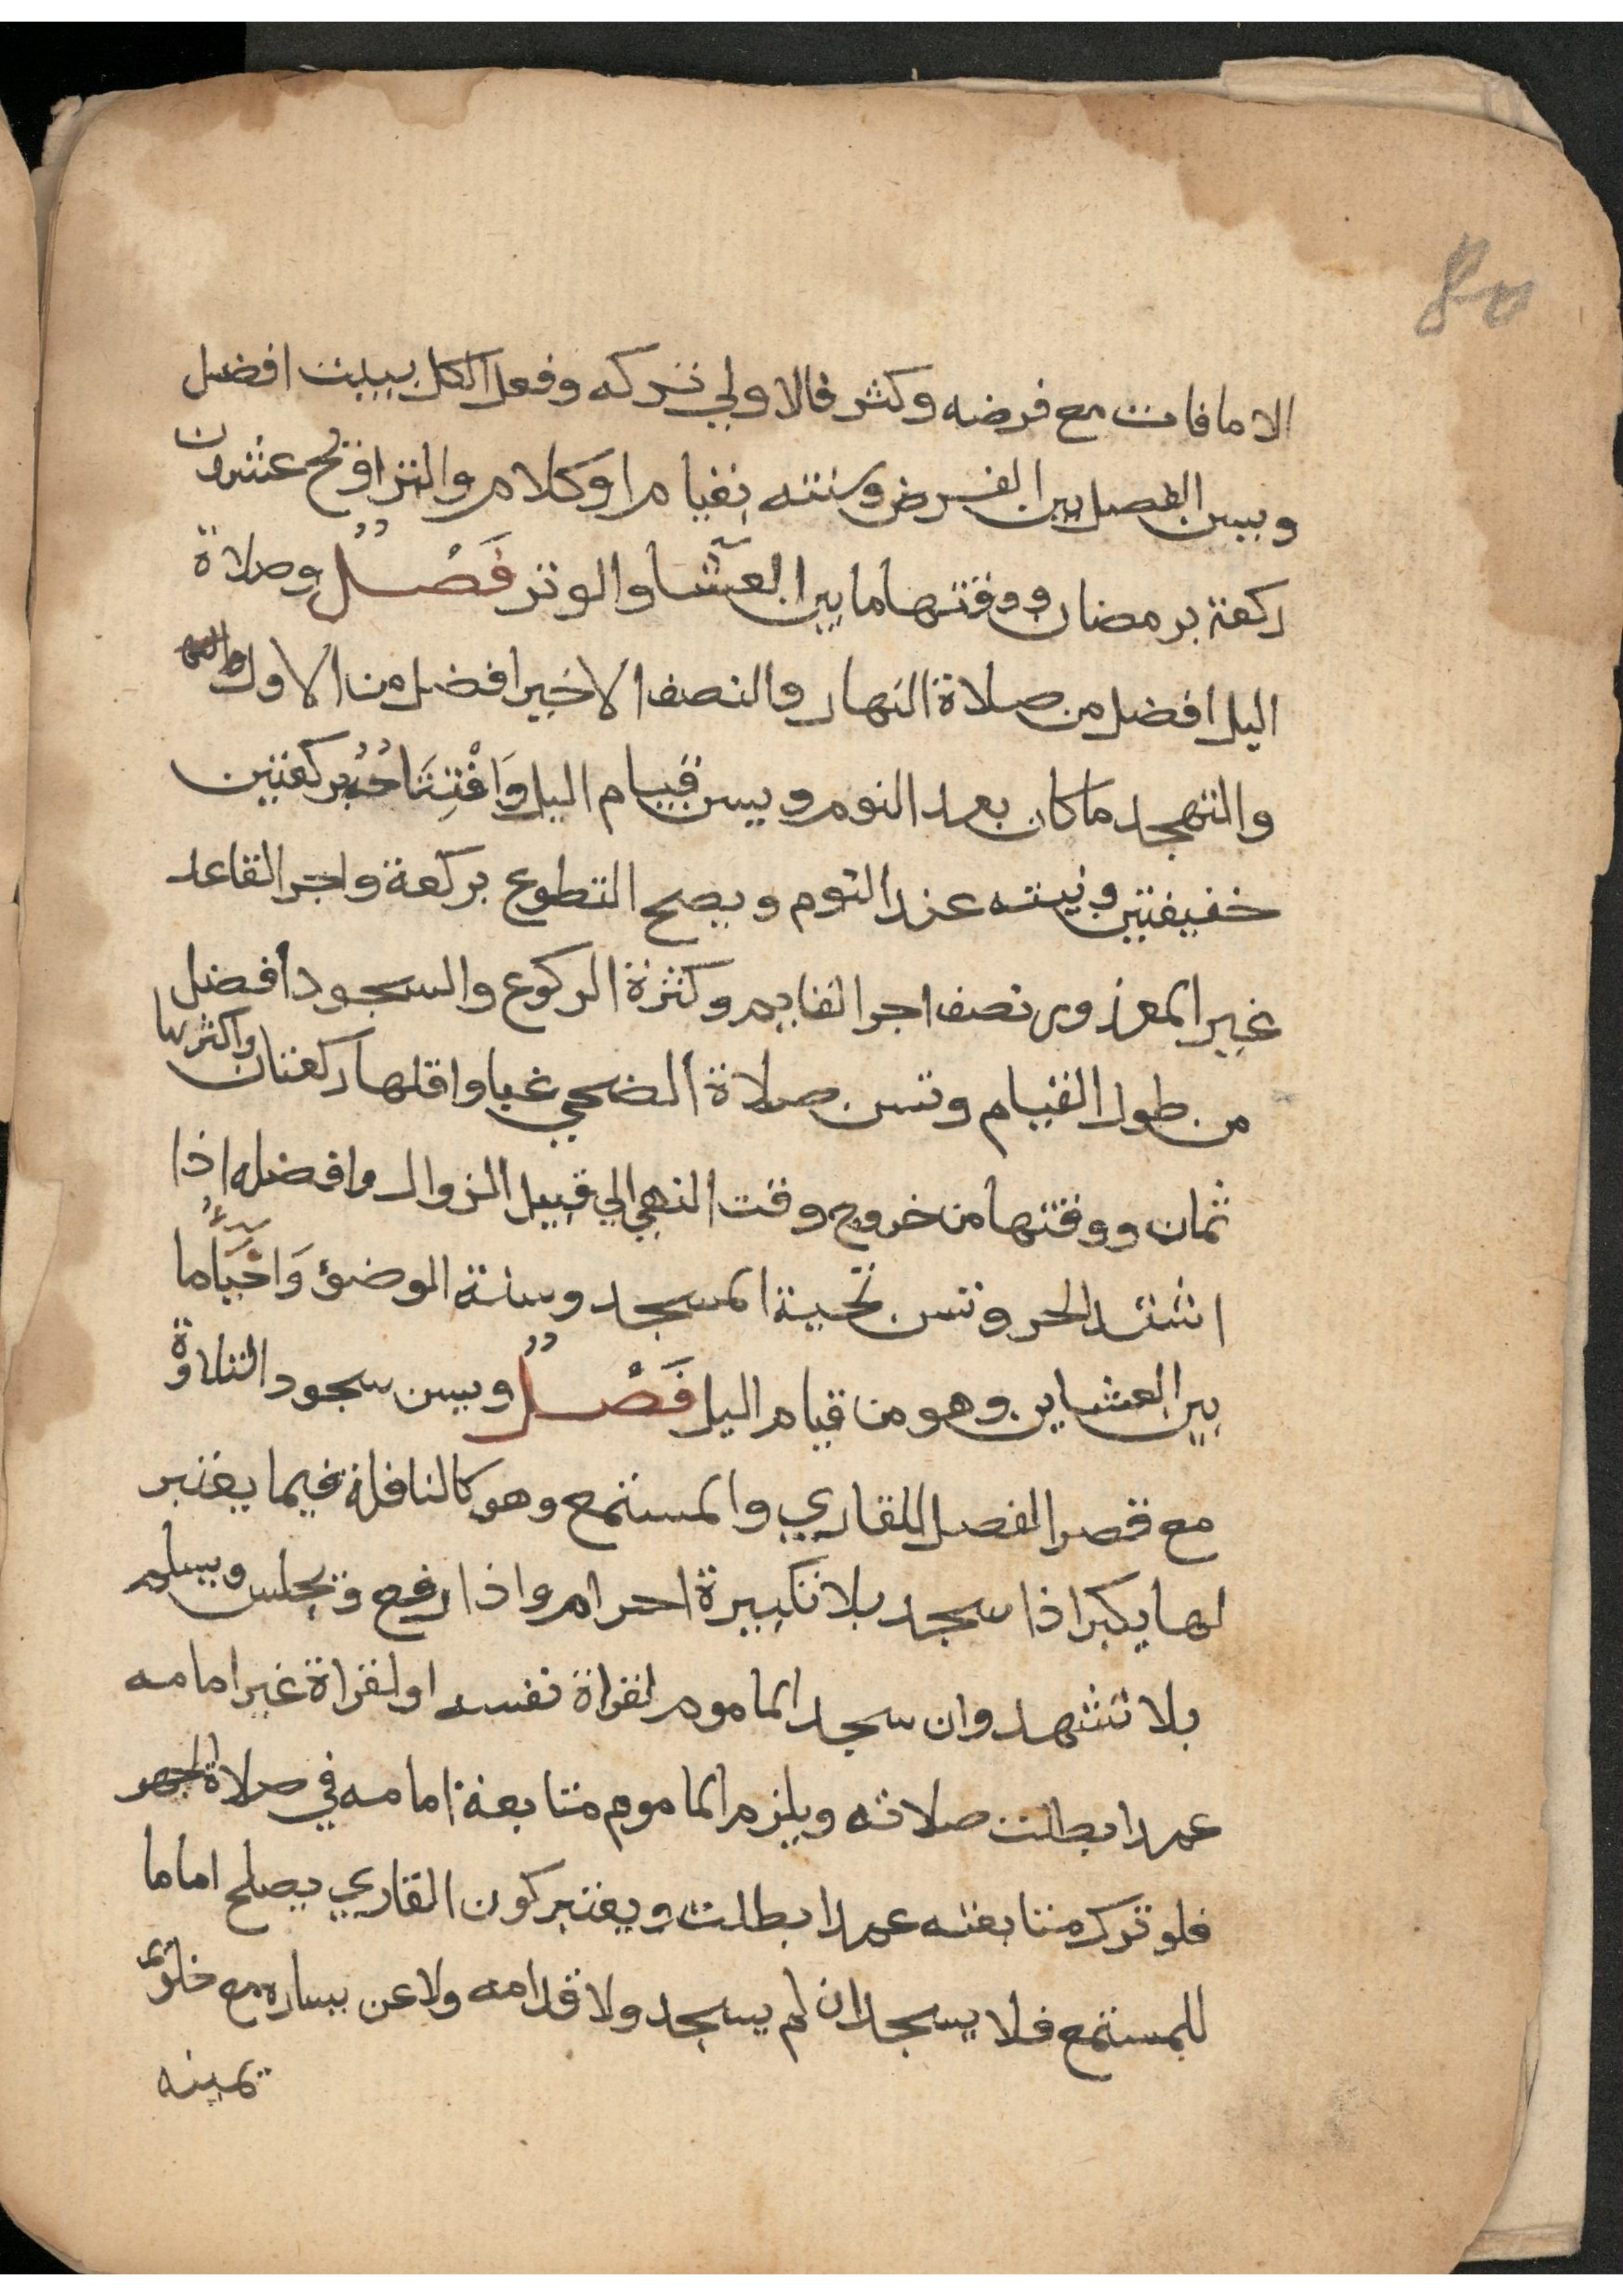 الا ما فات مع فرضه وكثر فالاولي تركه وفعل الكل ببيت افضل
ويسن الفصل بين الفرض وسنته بقيام او كلام والتراويح عشرون
ركعة برمضان ووقتها ما بين العشا والوتر فَصْلٌ وصلاة
اليل افضل من صلاة النهار والنصف الاخير افضل من الاول
والتهجد ما كان بعد النوم ويسن قيام اليل وَافْتِتَاحُهُ بركعتين
خفيفتين ونيته عند النوم ويصح التطوع بركعة واجر القاعد
غير المعذور نصف اجر القايم وكثرة الركوع والسجود أفضل
من طول القيام وتسن صلاة الضحي غبا واقلها ركعتان واكثرها
ثمان ووقتها من خروج وقت النهي الي قبيل الزوال وافضله اذا
اشتد الحر وتسن تحية المسجد وسنة الوضؤ وَاحْيَآءُ ما
بين العشاين وهو من قيام اليل فَصْلٌ ويسن سجود التلاوة
مع قصر الفصل للقاري والمستمع وهو كالنافلة فيما يعتبر
لها يكبر اذا سجد بلا تكبيرة احرام واذا رفع ويجلس ويسلم
بلا تشهد وان سجد الماموم لقراة نفسه او لقراة غير امامه
عمدا بطلت صلاته ويلزم الماموم متابعة امامه في صلاة الجهر
فلو ترك متابعته عمدا بطلت ويعتبر كون القاري يصلح اماما
للمستمع فلا يسجد ان لم يسجد ولا قدامه ولا عن يساره مع خلو
يمينه